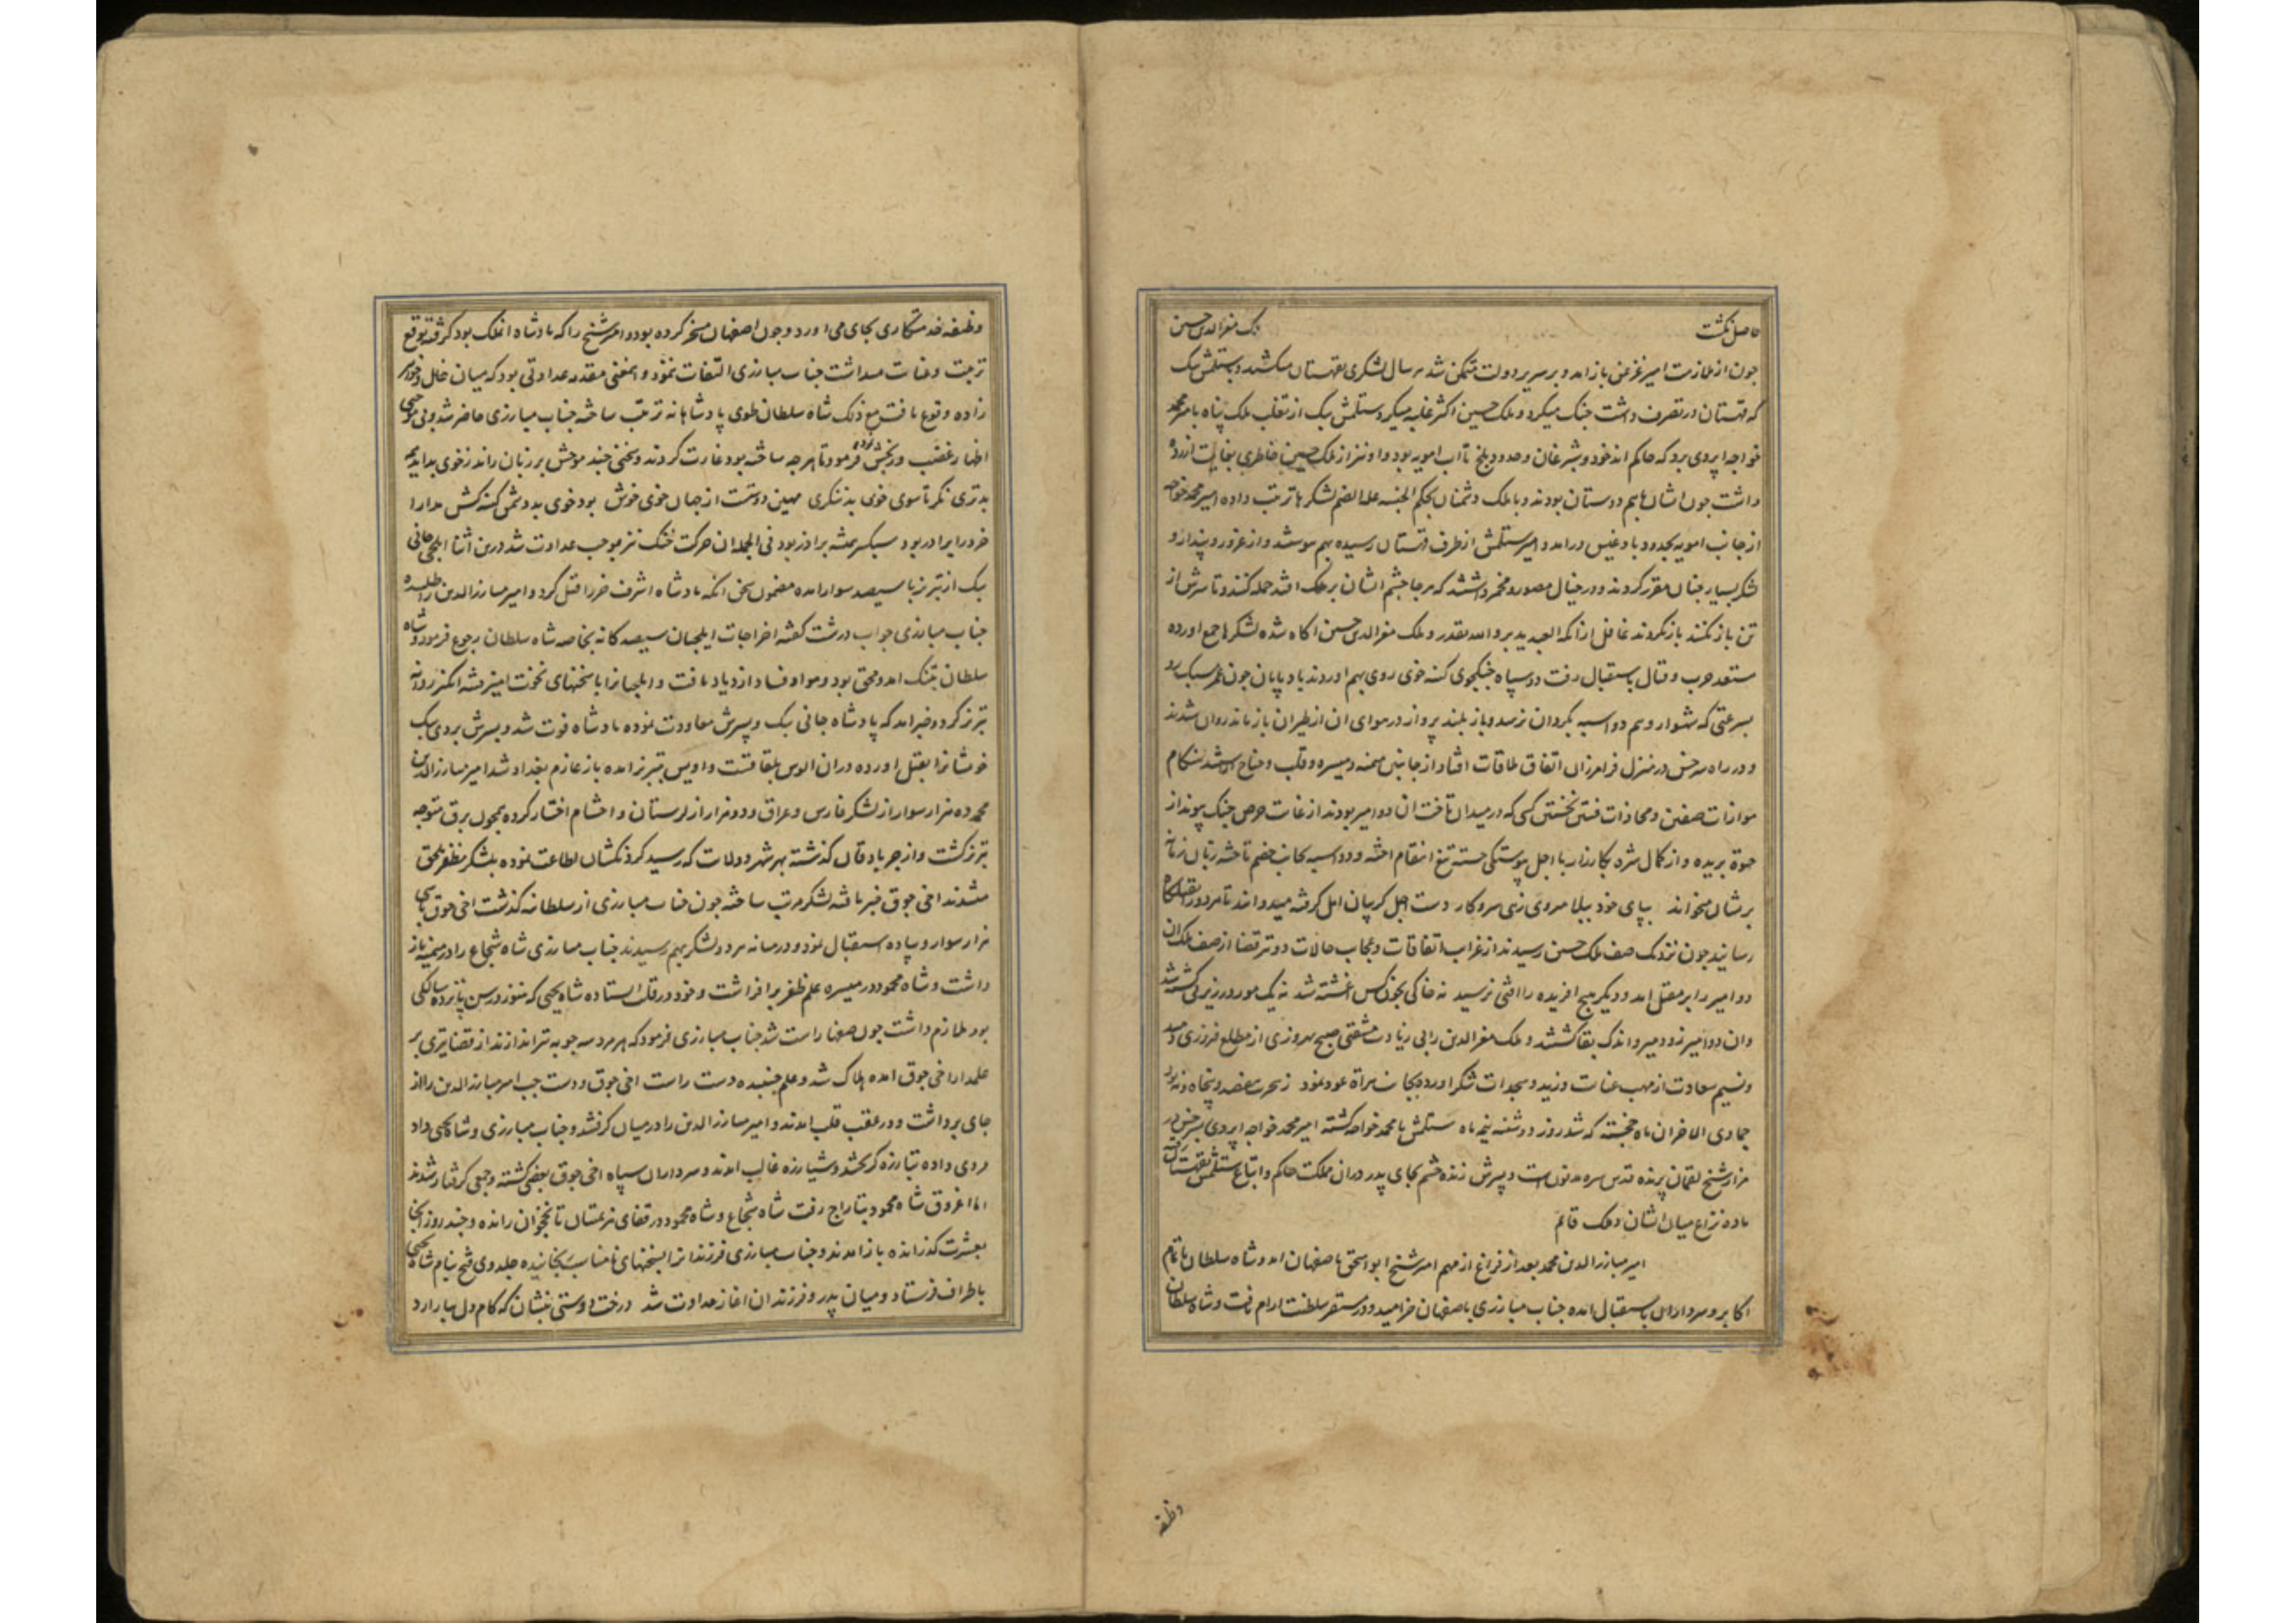 حاصل نکشت ملک معزالدین حسین
چون از ملازمت امیر غزغن باز امد و بر سریر دولت متمکن شد هر سال لشکری بقهستان میکشید و ستلمش بیک
که قهستان در تصرف داشت جنک میکرد و ملک حسین اکثر غلبه میکرد ستلمش بیک از تغلب ملک پناه بامیر محمد
خواجه اپردی برد که حاکم اندخود و شبرغان و حدود بلخ تا اب امویه بود و او نیز از ملک حسین خاطری بغایت ازرده
داشت چون ایشان باهم دوستان بودند و با ملک دشمنان بحکم الجنسیه علة الضم لشکرها ترتیب داده امیر محمد خواجه
از جانب امویه بحدود بادغیس درامد و امیر ستلمش از طرف قهستان رسیده بهم پیوستند و از غرور و پندار و
لشکر بسیار چنان مقرر کردند و در خیال مصور و مخمر داشتند که هر جا چشم ایشان بر ملک افتد حمله کنند و تا سرش از
تن باز نکنند باز نکردند غافل از انکه العبد یدبر و الله یقدر و ملک معزالدین حسین اکاه شده لشکرها جمع اورده
مستعد حرب و قتال باستقبال رفت دو سپاه جنکجوی کینه خوی روی بهم اوردند باد پایان چون عمر سبک رو
بسرعتی که شهسوار وهم دو اسبه بکرد ان نرسد و باز بلند پرواز در هوای ان از طیران باز ماند روان شدند
و در راه سرخس در منزل فرامرزان اتفاق ملاقات افتاد از جانبین میمنه و میسره و قلب و جناح اراسته شد هنکام
موازات صفین و محاذات فئتین نخستین کسی که در میدان تاخت ان دو امیر بودند از غایت حرص جنک پیوند از
حیوة بریده و از کمال شره بکارزار با اجل پیوستکی جسته تیغ انتقام اخته و دو اسبه بجانب خصم تاخته زبان زمانه
بریشان میخواند بپای خود ببلا میروی زهی سر و کار دست اجل کریبان امل کرفته میدوانند تا هر دو را بقتلکاه
رسانید چون نزدیک صف ملک حسین رسیدند از غرایب اتفاقات و عجایب حالات دو تیر قضا از صف ملک ان
دو امیر را بر مقتل امد و دیکر هیچ افریده را افتی نرسید نه خاکی بخون کس اغشته شد نه یک مور در زیر پی کشته شد
وان دو امیر زود میر و اندک بقا کشتند و ملک معزالدین را بی زیادت مشقتی صبح بهروزی از مطلع فیروزی دمید
و نسیم سعادت از مهب عنایت وزید و سجدات شکر اورده بجانب هراة عود نمود ز هجرت هفصد و پنجاه و نه بود
جمادی الاخر ان ماه خجسته که شد روز دوشنبه نیمه ماه ستلمش با محمد خواجه کشته امیر محمد خواجه اپردی بسرخس در
مزار شیخ لقمان پرنده قدس سره مدفونست و پسرش زنده حشم بجای پدر دران مملکت حاکم و اتباع ستلمش بقهستان رفت
ماده نزاع میان ایشان و ملک قایم
امیر مبارزالدین محمد بعد از فراغ از مهم امیر شیخ ابو اسحق باصفهان امد و شاه سلطان با تمام
اکابر و سرداران باستقبال امده جناب مبارزی باصفهان خرامید و در مستقر سلطنت ارام یافت و شاه سلطان
وظیفه
وظیفه خدمتکاری بجای می اورد و چون اصفهان مسخر کرده بود و امیر شیخ را که پادشاه ان ملک بود کرفته توقع
تربیت و عنایت میداشت جناب مبارزی التفات ننمود و این معنی مقدمه عداوتی بود که میان خال و خواهر
زاده وقوع یافت مع ذلک شاه سلطان طوی پادشاهانه ترتیب ساخته جناب مبارزی حاضر شد و بی موجبی
اظهار غضب و رنجش نموده فرمود تا هر چه ساخته بود غارت کردند و سخنی چند موحش بر زبان راند ز خوی بد اید همه
بدتری نکر تا سوی خوی بد ننکری مهین دوست از جهان خوی خوش بود خوی بد دشمن کینه کش مدارا
خرد را برادر بود سبکسر همیشه براذر بود فی الجمله ان حرکت خنک نیز موجب عداوت شد درین اثنا ایلچی جانی
بیک از تبریز با سیصد سوار امده مضمون سخن انکه پادشاه اشرف خر را قتل کرد و امیر مبارزالدین را طلبیده
جناب مبارزی جواب درشت کفته اخراجات ایلچیان سیصد کانه بخاصه شاه سلطان رجوع فرمود و شاه
سلطان بتنک امد و محق بود و مواد فساد ازدیاد یافت و ایلچیانرا با سخنهای نخوت امیز فتنه انکیز روانه
تبریز کرد و خبر امد که پادشاه جانی بیک و پسرش معاودت نموده پادشاه فوت شد و پسرش بردی بیک
خویشانرا بقتل اورده دران الوس بلقاقست و اویس بتبریز امده باز عازم بغداد شد امیر مبارزالدین
محمد ده هزار سوار از لشکر فارس و عراق و دو هزار از لرستان و احشام اختیار کرده همچون برق متوجه
تبریز کشت و از جرباد قان کذشته بهر شهر و ولایت که رسید کردنکشان اطاعت نموده بلشکر مظفر ملحق
میشدند اخی جوق خبر یافته لشکر مرتب ساخته چون جناب مبارزی از سلطانیه کذشت اخی جوق با سی
هزار سوار و پیاده استقبال نمود و در میانه هر دو لشکر بهم رسیدند جناب مبارزی شاه شجاع را در میمنه باز
داشت و شاه محمود در میسره علم ظفر برافراشت و خود در قلب ایستاده شاه یحیی که هنوز در سن پانزده سالکی
بود ملازم داشت چون صفها راست شد جناب مبارزی فرمود که هر مرد سه چوبه تیر اندازند از قضا تیری بر
علمدار اخی جوق امده هلاک شد و علم جنبیده دست راست اخی جوق و دست چپ امیر مبارزالدین را از
جای برداشت و در عقب قلب امدند و امیر مبارزالدین را در میان کرفتند و جناب مبارزی و شاه یحیی داد
مردی داده تبارزه کریختند و شیارزه غالب امدند و سرداران سپاه اخی جوق بعضی کشته و جمعی کرفتار شدند
اما اغروق شاه محمود بتاراج رفت شاه شجاع و شاه محمود در قفای هزیمتیان تا نخجوان رانده و چند روز انجا
بعشرت کذرانده باز امدند و جناب مبارزی فرزندانرا بسخنهای نامناسب رنجانیده جلدوی فتح بنام شاه یحیی
باطراف فرستاد و میان پدر و فرزندان اغاز عداوت شد درخت دوستی بنشان که کام دل ببار ارد